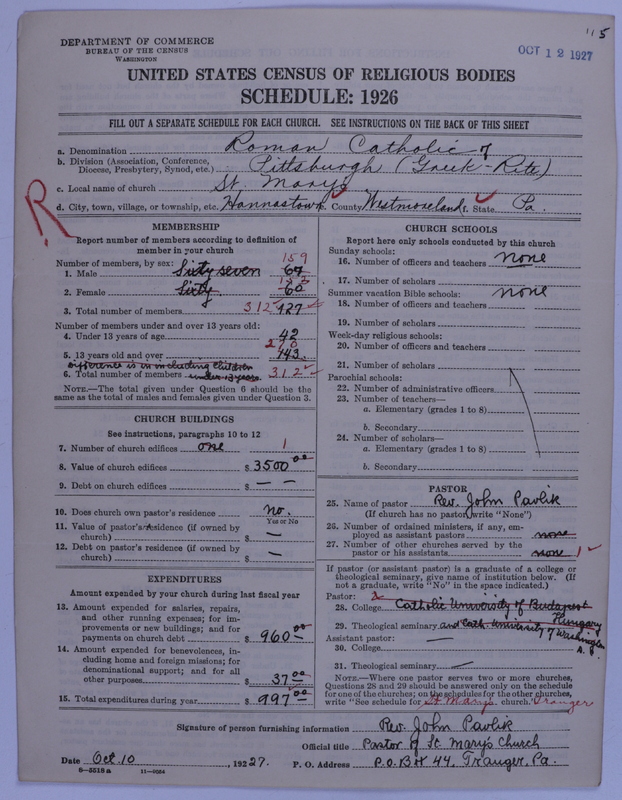 115
DEPARTMENT OF COMMERCE
BUREAU OF THE CENSUS
WASHINGTON
OCT 12 1927
UNITED STATES CENSUS OF RELIGIOUS BODIES
SCHEDULE: 1926
FILL OUT A SEPARATE SCHEDULE FOR EACH CHURCH. SEE INSTRUCTIONS ON THE BACK OF THIS SHEET
a. Denomination Roman Catholic of
b. Division (Association, Conference, Diocese, Presbytery, Synod, etc.) Pittsburgh (Greek-Rite)
c. Local name of church St Marys
d. City, town, village, or township, etc. Hannastown County Westmoreland f. State Pa.
R
MEMBERSHIP
Report number of members according to definition of
member in your church
Number of members, by sex:
159
1. Male Sixty seven 67
153
2. Female Sixty 60
3. Total number of members 312 927
Number of members under and over 13 years old:
4. Under 13 years of age 42
270
5. 13 years old and over 143
Difference is in including children
under 13 years
6. Total number of members 312
NOTE.—The total given under Question 6 should be
the same as the total of males and females given under Question 3.
CHURCH BUILDINGS
See instructions, paragraphs 10 to 12
7. Number of church edifices one 1
8. Value of church edifices $ 3500 00
9. Debt on church edifices $ — —
10. Does church own pastor's residence no.
Yes or No
11. Value of pastor's residence (if owned by
church) $ —
12. Debt on pastor's residence (if owned by
church) $ —
EXPENDITURES
Amount expended by your church during last fiscal year
13. Amount expended for salaries, repairs,
and other running expenses; for im-
provements or new buildings; and for
payments on church debt $ 960 00
14. Amount expended for benevolences, in-
cluding home and foreign missions; for
denominational support; and for all
other purposes $ 37 00
15. Total expenditures during year $ 997 00
CHURCH SCHOOLS
Report here only schools conducted by this church
Sunday schools:
16. Number of officers and teachers none
17. Number of scholars
Summer vacation Bible schools: none
18. Number of officers and teachers
19. Number of scholars
Week-day religious schools:
20. Number of officers and teachers
21. Number of scholars
Parochial schools:
22. Number of administrative officers
23. Number of teachers—
a. Elementary (grades 1 to 8)
b. Secondary
24. Number of scholars—
a. Elementary (grades 1 to 8)
b. Secondary
PASTOR
25. Name of pastor Rev. John Pavlik
(If church has no pastor, write "None")
26. Number of ordained ministers, if any, em-
ployed as assistant pastors none
27. Number of other churches served by the
pastor or his assistants none 1
If pastor (or assistant pastor) is a graduate of a college or
theological seminary, give name of institution below. (If
not a graduate, write "No" in the space indicated.)
Pastor: 2
28. College Catholic University of Budapest
Hungary
29. Theological seminary and Cath. University of Washington
Assistant pastor: —
30. College
31. Theological seminary —
NOTE.—Where one pastor serves two or more churches,
Questions 28 and 29 should be answered only on the schedule
for one of the churches; on the schedules for the other churches,
write "See schedule for St Marys church." Tranger
Signature of person furnishing information Rev. John Pavlik
Official title Pastor of St. Marys Church
Date Oct. 10, 1927. P. O. Address P.O. Box 44, Tranger, Pa.
8—5518a 11—9054